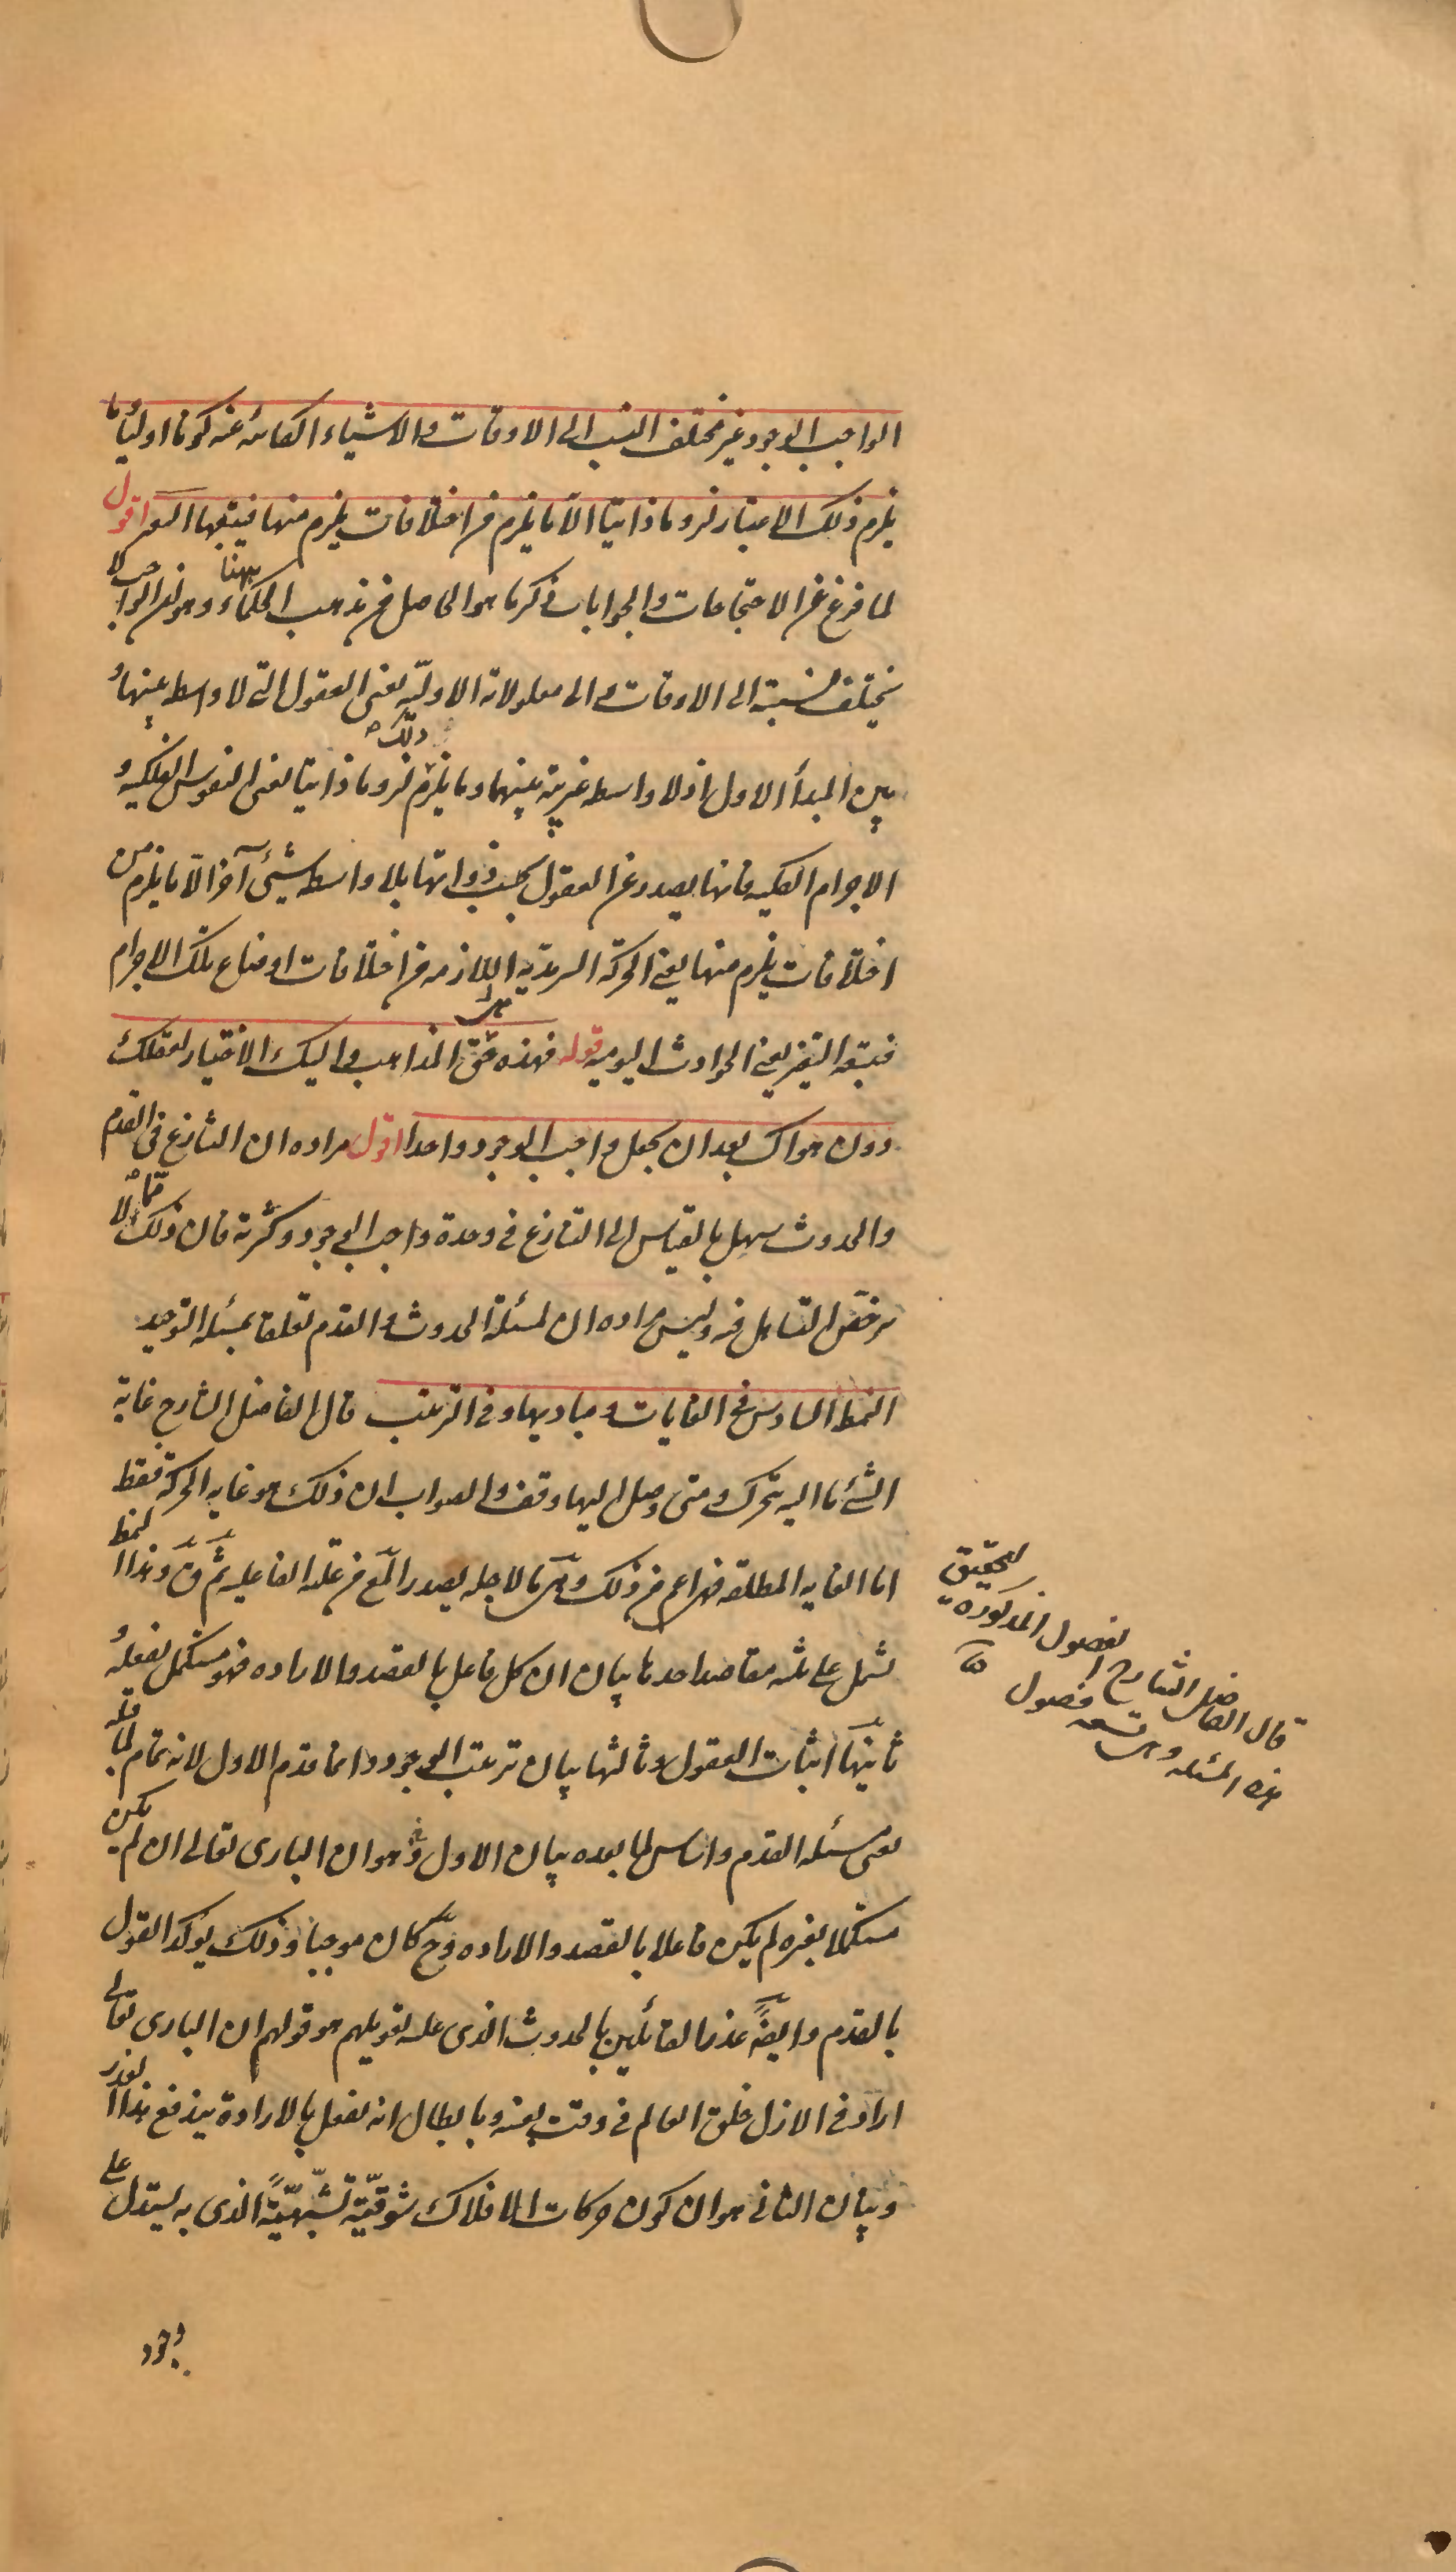 الواجب الوجود غير مختلف النسب الى الاوقات والاشياء الكائنه عنه كونا اوليا وما
يلزم ذلك الاعتبار لزوما ذاتيا الا ما يلزم من اختلافات يلزم منها فيتبعها التغير اقول
لما فرغ عن الاحتجاجات والجوابات ذكر ما هو الحاصل من مذهب الحكماء ههنا وهو ان الواجب لا
يختلف نسبته الى الاوقات والى معلولاته الاوليه يعنى العقول التى لا واسط بينها و
بين المبدأ الاول اذ لا واسطه غريبة بينهما وما يلزم ذلك لزوما ذاتيا يعنى النفوس الفلكيه و
الاجرام الفلكيه فانها يصدر عن العقول بحسب ذواتها بلا واسط شيئ آخر الا ما يلزم من
اختلافات يلزم منها يعنى الحركة السرمديه اللازمه من اختلافات اوضاع تلك الاجرام
فيتبعه التغير يعنى الحوادث اليوميه قوله فهذه هى المذاهب واليك الاختيار لعقلك
دون هواك بعد ان يجعل واجب الوجود واحدا اقول مراده ان التنازع فى القدم
والحدوث سهل بالقياس الى التنازع فى وحدة واجب الوجود وكثرته فان ذلك مما لا
يرخص التساهل فيه وليس مراده ان لمسئلة الحدوث والقدم تعلقا بمسئله التوحيد
النمط السادس فى الغايات ومباديها وفى الترتيب قال الفاضل الشارح غاية
الشئ ما اليه يتحرك ومتى وصل اليها وقف والصواب ان ذلك هو غايه الحركة فقط
اما الغايه المطلقه فهى اعم من ذلك وهى ما لاجله يصدر المع من علته الفاعليه ثم ق وهذا النمط
يشمل على ثلثه مقاصد احدها بيان ان كل فاعل بالقصد والاراده فهو مستكمل بفعله و
ثانيها اثبات العقول وثالثها بيان ترتيب الوجود وانما قدم الاول لانه تمام لما قبله
يعنى مسئله القدم واساس لما بعده بيان الاول هو ان البارى تعالى ان لم يكن
مستكملا بغيره لم يكن فاعلا بالقصد والاراده وح كان موجبا وذلك يؤكد القول
بالقدم وايضً عذر القائلين بالحدوث الذى عليه تعويلهم هو قولهم ان البارى تعالى
اراد فى الازل خلق العالم فى وقت بعينه وبابطال انه يفعل بالارادة يندفع هذا العذر
وبيان الثانى هو ان كون حركات الافلاك شوقيّة تشبّهيّة الذى به يستدل على
وجود
قال الفاضل الشارح الفصول المذكورة لتحقيق
هذه المسئله وهى تسعه فصول